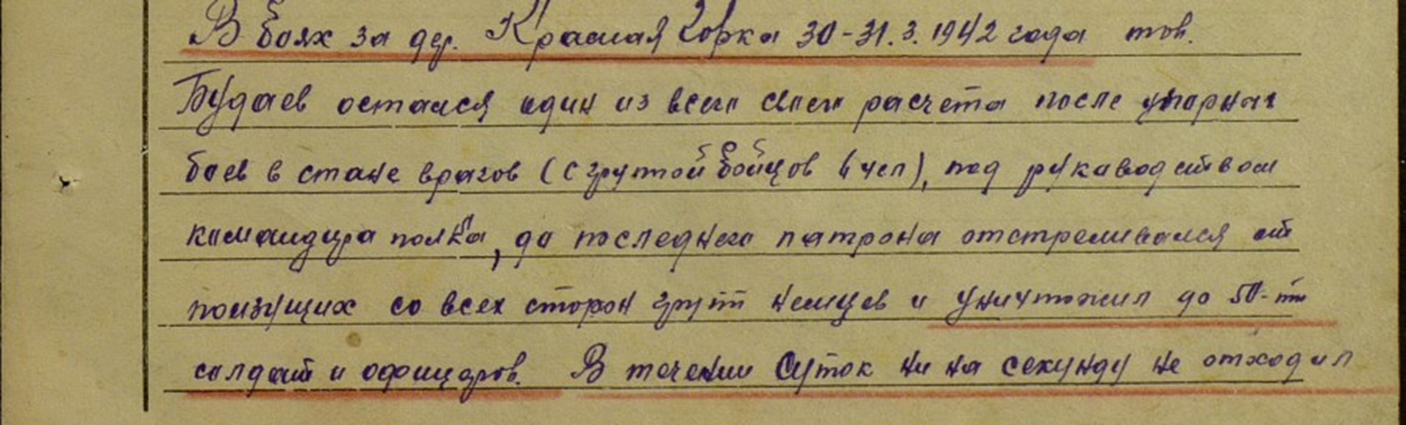 В боях за дер. Красная Горка 30-31.3.1942 года тов.
Будаев остался один из всего своего расчета после упорных
боев в стане врагов (с группой бойцов 6 чел), под руководством
командира полка, до последнего патрона отстреливался от
ползущих со всех сторон групп немцев и уничтожил до 50-ти
солдат и офицеров. В течении суток ни на секунду не отходил